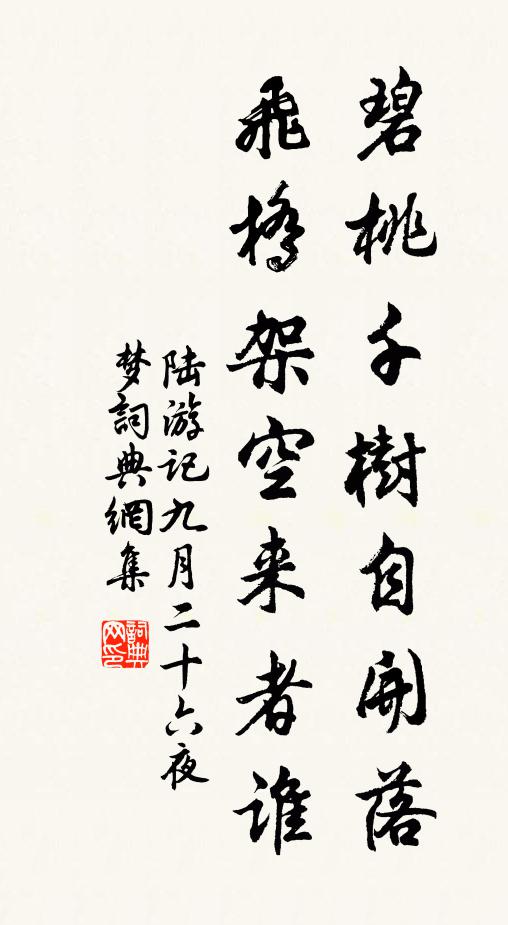 碧桃千樹自開落
飛橋架空来者誰
陆游记九月二十六夜
梦詞典網集
詞典网印